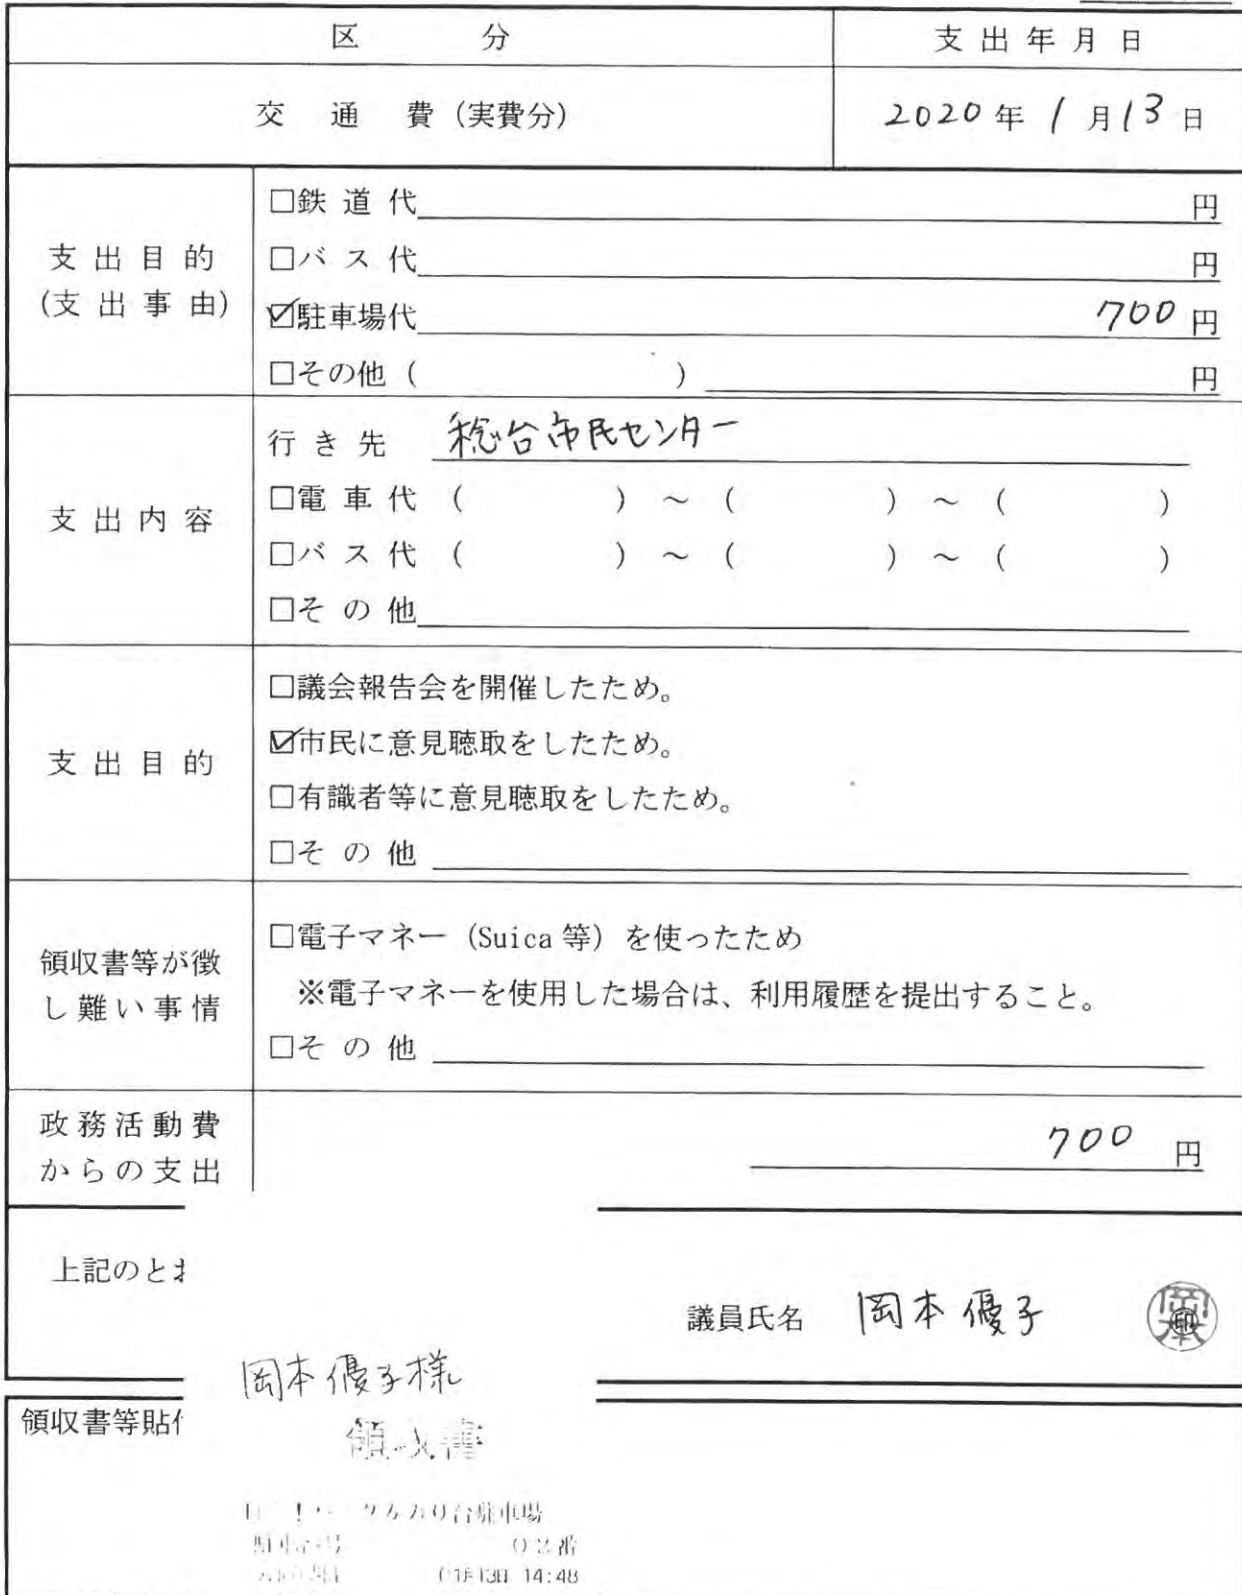 区 分 支出年月日
交 通 費 (実費分) 2020年 1月13日
支出目的
(支出事由)
□鉄道代 円
□バス代 円
☑駐車場代 700円
□その他 ( ) 円
支出内容
行き先 稔台市民センター
□電車代 ( ) ～ ( ) ～ ( )
□バス代 ( ) ～ ( ) ～ ( )
□その他
支出目的
□議会報告会を開催したため。
☑市民に意見聴取をしたため。
□有識者等に意見聴取をしたため。
□その他
領収書等が徴
し難い事情
□電子マネー (Suica等) を使ったため
※電子マネーを使用した場合は、利用履歴を提出すること。
□その他
政務活動費
からの支出
700 円
上記のとお
議員氏名 岡本優子 岡本 印
岡本優子様
領収書等貼付
領収書
台駐車場
02番
01月13日 14:48